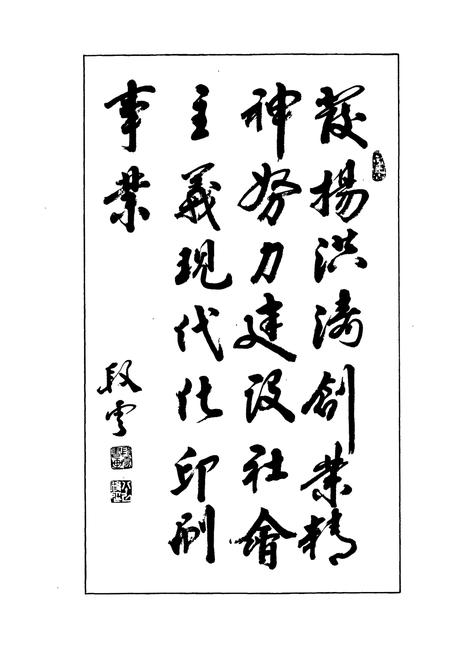 發揚洪濤創業精
神努力建設社會
主義現代化印刷
事業
段雲